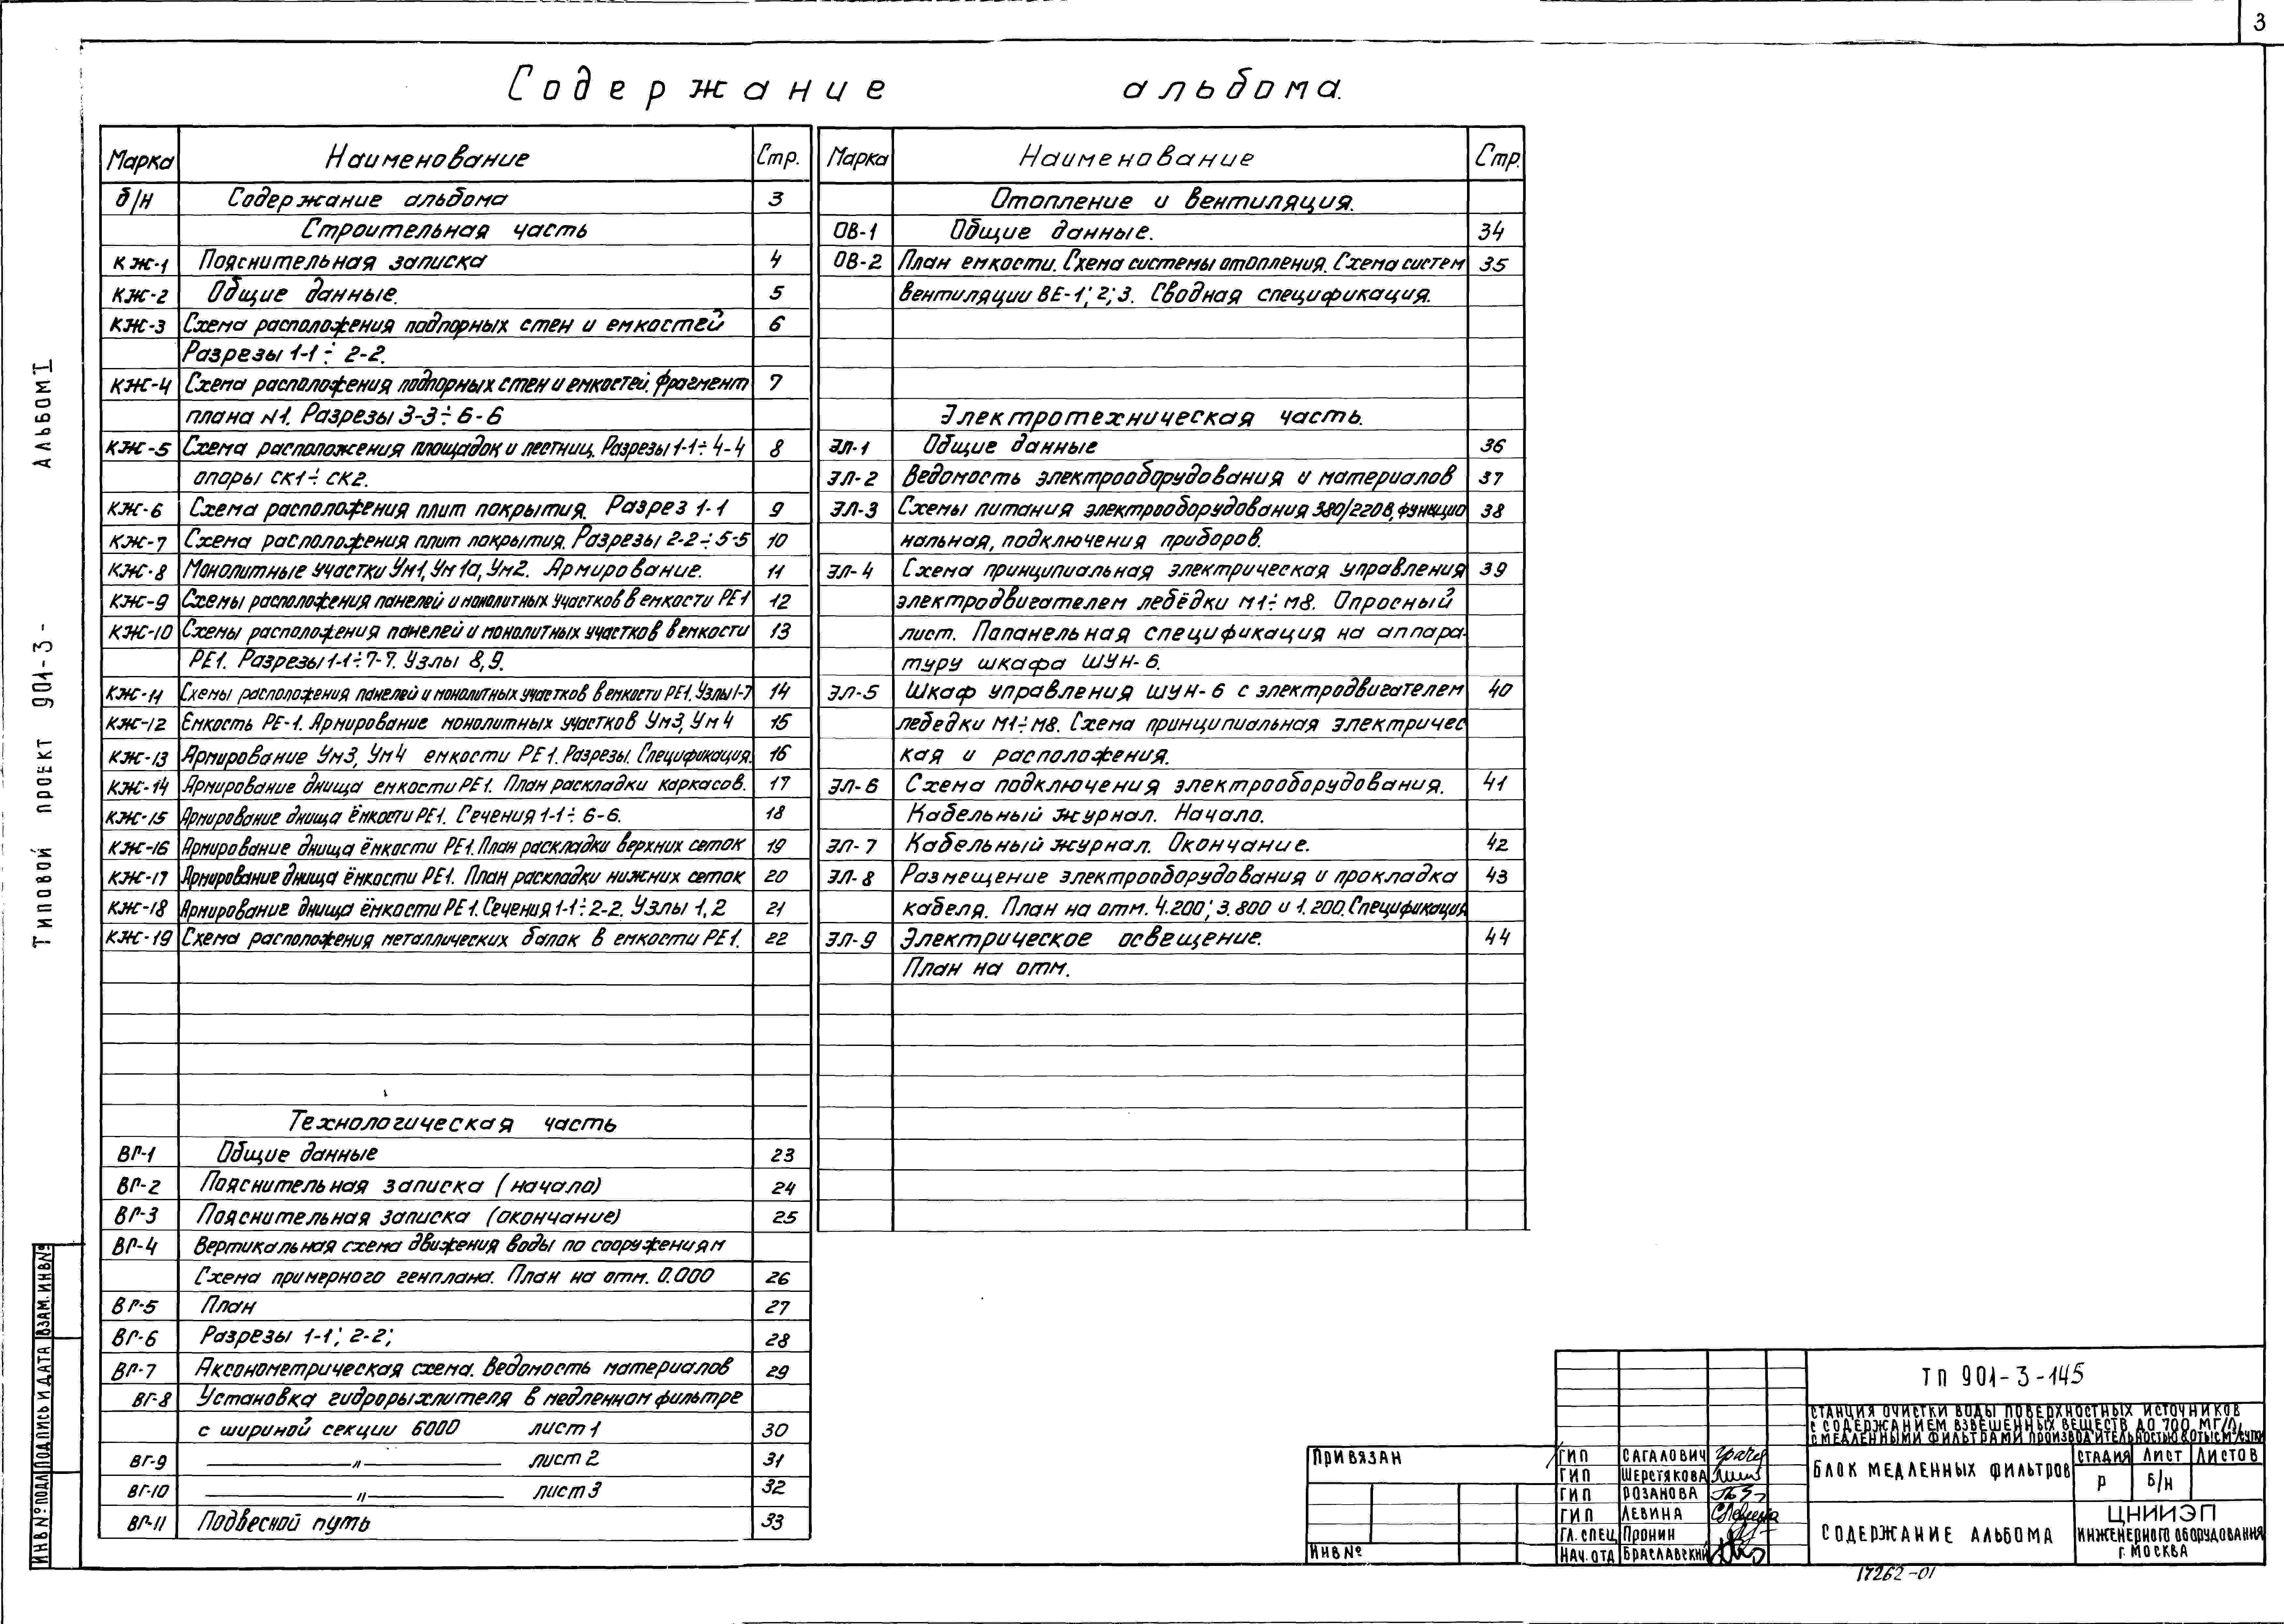 3
Содержание альбома.
Марка Наименование Стр.
б/н Содержание альбома 3
Строительная часть
КЖ-1 Пояснительная записка 4
КЖ-2 Общие данные. 5
КЖ-3 Схема расположения подпорных стен и емкостей 6
Разрезы 1-1÷2-2.
КЖ-4 Схема расположения подпорных стен и емкостей. фрагмент 7
плана N1. Разрезы 3-3÷6-6
КЖ-5 Схема расположения площадок и лестниц. Разрезы 1-1÷4-4 8
опоры СК1÷СК2.
КЖ-6 Схема расположения плит покрытия. Разрез 1-1 9
КЖ-7 Схема расположения плит покрытия. Разрезы 2-2÷5-5 10
КЖ-8 Монолитные участки Ум1, Ум1а, Ум2. Армирование. 11
КЖ-9 Схемы расположения панелей и монолитных участков в емкости РЕ1 12
КЖ-10 Схемы расположения панелей и монолитных участков в емкости 13
РЕ1. Разрезы 1-1÷7-7. Узлы 8,9.
КЖ-11 Схемы расположения панелей и монолитных участков в емкости РЕ1. Узлы 1-7 14
КЖ-12 Емкость РЕ-1. Армирование монолитных участков Ум3, Ум4 15
КЖ-13 Армирование Ум3, Ум4 емкости РЕ1. Разрезы. Спецификация. 16
КЖ-14 Армирование днища емкости РЕ1. План раскладки каркасов. 17
КЖ-15 Армирование днища ёмкости РЕ1. Сечения 1-1÷6-6. 18
КЖ-16 Армирование днища ёмкости РЕ1. План раскладки верхних сеток 19
КЖ-17 Армирование днища ёмкости РЕ1. План раскладки нижних сеток 20
КЖ-18 Армирование днища ёмкости РЕ1. Сечения 1-1÷2-2. Узлы 1,2 21
КЖ-19 Схема расположения металлических балок в емкости РЕ1. 22
Технологическая часть
ВГ-1 Общие данные 23
ВГ-2 Пояснительная записка (начало) 24
ВГ-3 Пояснительная записка (окончание) 25
ВГ-4 Вертикальная схема движения воды по сооружениям
Схема примерного генплана. План на отм. 0.000 26
ВГ-5 План 27
ВГ-6 Разрезы 1-1; 2-2; 28
ВГ-7 Аксонометрическая схема. Ведомость материалов 29
ВГ-8 Установка гидрорыхлителя в медленном фильтре
с шириной секции 6000 лист 1 30
ВГ-9 —"— лист 2 31
ВГ-10 —"— лист 3 32
ВГ-11 Подвесной путь 33
Марка Наименование Стр.
Отопление и вентиляция.
ОВ-1 Общие данные. 34
ОВ-2 План емкости. Схема системы отопления. Схема систем 35
вентиляции ВЕ-1; 2; 3. Сводная спецификация.
Электротехническая часть.
ЭЛ-1 Общие данные 36
ЭЛ-2 Ведомость электрооборудования и материалов 37
ЭЛ-3 Схемы питания электрооборудования 380/220В, функцио 38
нальная, подключения приборов.
ЭЛ-4 Схема принципиальная электрическая управления 39
электродвигателем лебёдки М1÷М8. Опросный
лист. Папанельная спецификация на аппара-
туру шкафа ШУН-6.
ЭЛ-5 Шкаф управления ШУН-6 с электродвигателем 40
лебедки М1÷М8. Схема принципиальная электричес
кая и расположения.
ЭЛ-6 Схема подключения электрооборудования. 41
Кабельный журнал. Начало.
ЭЛ-7 Кабельный журнал. Окончание. 42
ЭЛ-8 Размещение электрооборудования и прокладка 43
кабеля. План на отм. 4.200; 3.800 и 1.200. Спецификация
ЭЛ-9 Электрическое освещение. 44
План на отм.
Типовой проект 901-3- Альбом I
Инв № подл Подпись и дата Взам. инв №
Привязан
Инв №
ГИП Сагалович
ГИП Шерстякова
ГИП Розанова
ГИП Левина
Гл. спец. Пронин
Нач. отд Браславский
ТП 901-3-145
Станция очистки воды поверхностных источников
с содержанием взвешенных веществ до 700 мг/л,
с медленными фильтрами производительностью 8,0 тыс м³/сутки
Блок медленных фильтров
Стадия Лист Листов
Р б/н
Содержание альбома
ЦНИИЭП
инженерного оборудования
г. Москва
17262-01